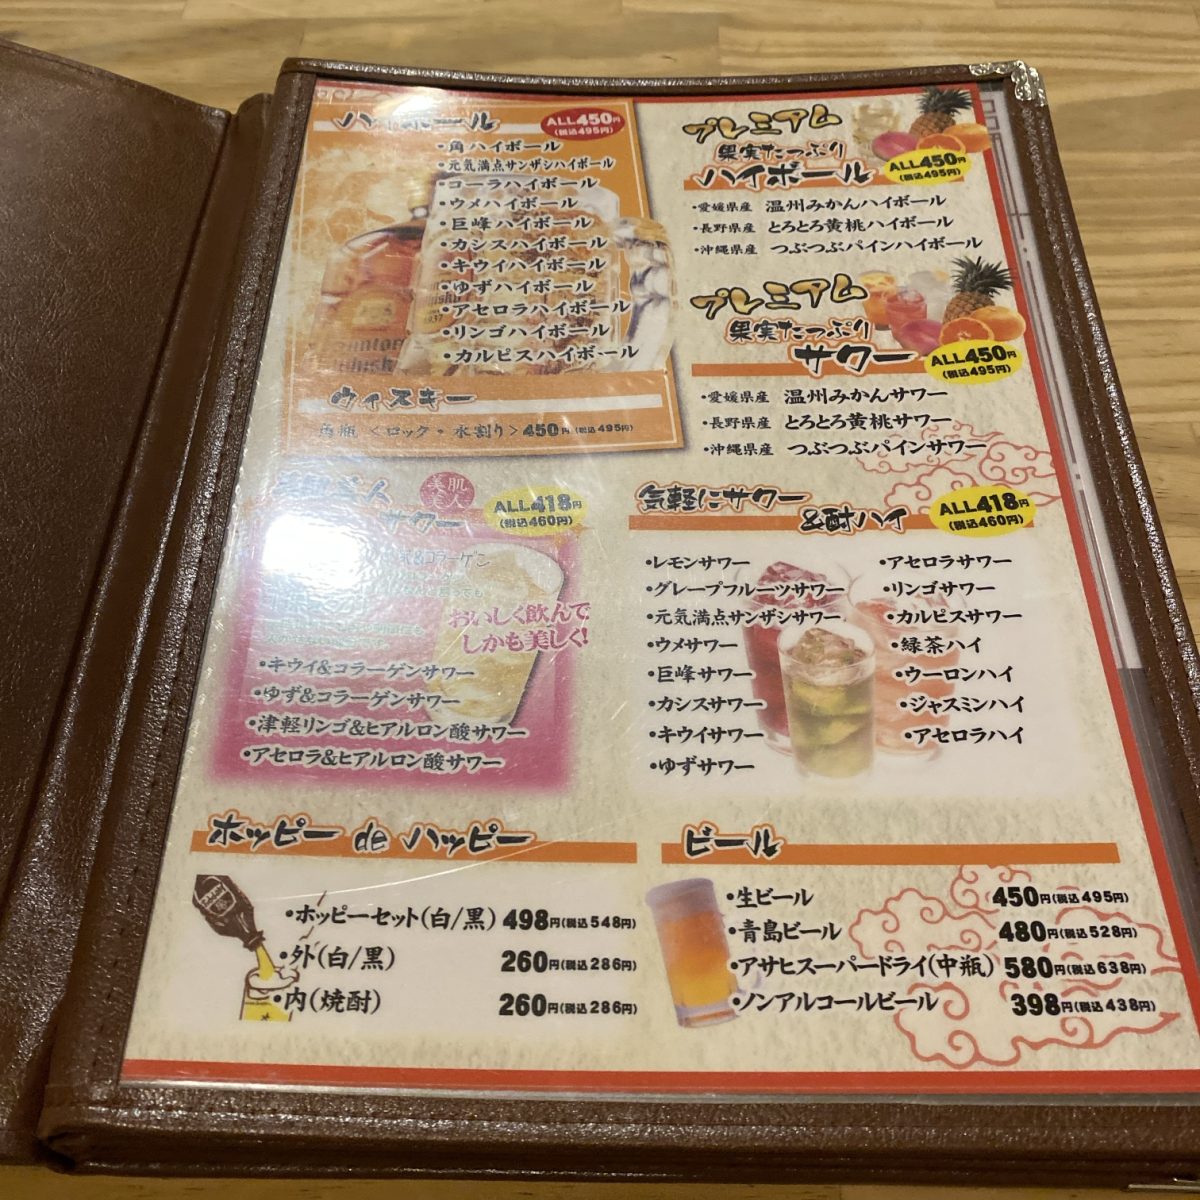 ハイボール
ALL450円
(税込495円)
・角ハイボール
・元気満点サンザシハイボール
・コーラハイボール
・ウメハイボール
・巨峰ハイボール
・カシスハイボール
・キウイハイボール
・ゆずハイボール
・アセロラハイボール
・リンゴハイボール
・カルピスハイボール
1937
ウィスキー
角瓶 <ロック・水割り> 450円(税込495円)
プレミアム
果実たっぷり
ハイボール
ALL450円
(税込495円)
・愛媛県産 温州みかんハイボール
・長野県産 とろとろ黄桃ハイボール
・沖縄県産 つぶつぶパインハイボール
プレミアム
果実たっぷり
サワー
ALL450円
(税込495円)
・愛媛県産 温州みかんサワー
・長野県産 とろとろ黄桃サワー
・沖縄県産 つぶつぶパインサワー
美人
サワー
美肌
美人
ALL418円
(税込460円)
&コラーゲン
おいしく飲んで
しかも美しく!
・キウイ&コラーゲンサワー
・ゆず&コラーゲンサワー
・津軽リンゴ&ヒアルロン酸サワー
・アセロラ&ヒアルロン酸サワー
気軽にサワー
&酎ハイ
ALL418円
(税込460円)
・レモンサワー
・グレープフルーツサワー
・元気満点サンザシサワー
・ウメサワー
・巨峰サワー
・カシスサワー
・キウイサワー
・ゆずサワー
・アセロラサワー
・リンゴサワー
・カルピスサワー
・緑茶ハイ
・ウーロンハイ
・ジャスミンハイ
・アセロラハイ
ホッピー de ハッピー
・ホッピーセット(白/黒) 498円(税込548円)
・外(白/黒) 260円(税込286円)
・内(焼酎) 260円(税込286円)
ビール
・生ビール 450円(税込495円)
・青島ビール 480円(税込528円)
・アサヒスーパードライ(中瓶) 580円(税込638円)
・ノンアルコールビール 398円(税込438円)